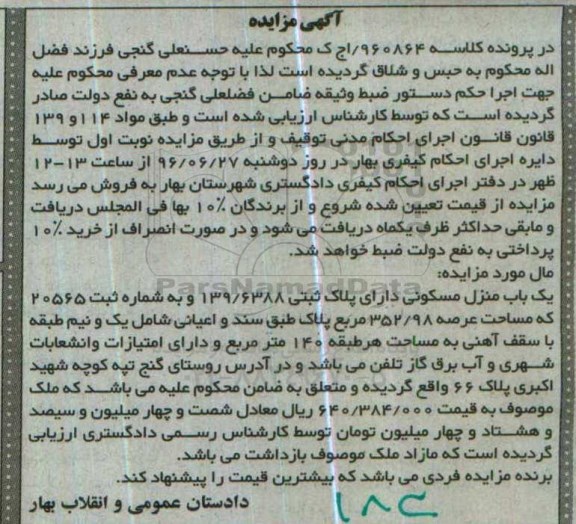 آگهی مزایده
در پرونده کلاسه ۹۶۰۸۶۴/اج ک محکوم علیه حسنعلی گنجی فرزند فضل
اله محکوم به حبس و شلاق گردیده است لذا با توجه عدم معرفی محکوم علیه
جهت اجرا حکم دستور ضبط وثیقه ضامن فضلعلی گنجی به نفع دولت صادر
گردیده است که توسط کارشناس ارزیابی شده است و طبق مواد ۱۱۴ و ۱۳۹
قانون قانون اجرای احکام مدنی توقیف و از طریق مزایده نوبت اول توسط
دایره اجرای احکام کیفری بهار در روز دوشنبه ۹۶/۰۶/۲۷ از ساعت ۱۳-۱۲
ظهر در دفتر اجرای احکام کیفری دادگستری شهرستان بهار به فروش می رسد
مزایده از قیمت تعیین شده شروع و از برندگان ۱۰٪ بها فی المجلس دریافت
و مابقی حداکثر ظرف یکماه دریافت می شود و در صورت انصراف از خرید ۱۰٪
پرداختی به نفع دولت ضبط خواهد شد.
مال مورد مزایده:
یک باب منزل مسکونی دارای پلاک ثبتی ۱۳۹/۶۳۸۸ و به شماره ثبت ۲۰۵۶۵
که مساحت عرصه ۳۵۲/۹۸ مربع پلاک طبق سند و اعیانی شامل یک و نیم طبقه
با سقف آهنی به مساحت هرطبقه ۱۴۰ متر مربع و دارای امتیازات وانشعابات
شهری و آب برق گاز تلفن می باشد و در آدرس روستای گنج تپه کوچه شهید
اکبری پلاک ۶۶ واقع گردیده و متعلق به ضامن محکوم علیه می باشد که ملک
موصوف به قیمت ۶۴۰/۳۸۴/۰۰۰ ریال معادل شصت و چهار میلیون و سیصد
و هشتاد و چهار میلیون تومان توسط کارشناس رسمی دادگستری ارزیابی
گردیده است که مازاد ملک موصوف بازداشت می باشد.
برنده مزایده فردی می باشد که بیشترین قیمت را پیشنهاد کند.
دادستان عمومی و انقلاب بهار
ParsNamadData